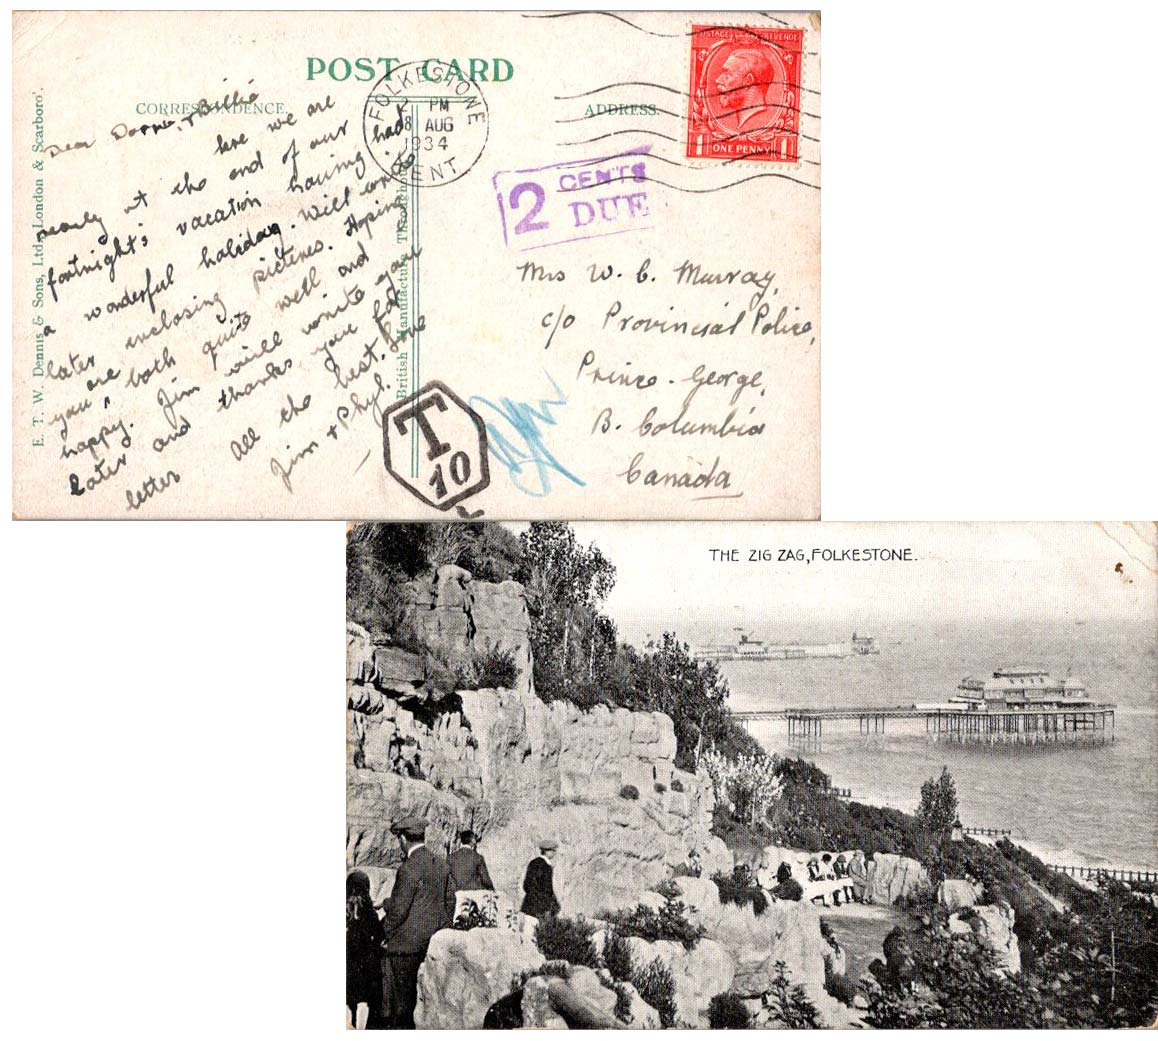 POST CARD
CORRESPONDENCE.
ADDRESS.
E. T. W. Dennis & Sons, Ltd., London & Scarboro'.
British Manufacture Throughout
FOLKESTONE
KENT
2 PM
8 AUG
1934
POSTAGE REVENUE
1 ONE PENNY 1
2 CENTS
DUE
T
10
Dear & Billie
here we are
nearly at the end of our
fortnight's vacation having had
a wonderful holiday. Will write
later enclosing pictures. Hoping
you are both quite well and
happy. Jim will write you
later and thanks you for
letter All the best. Love
Jim & Phyl.
Mrs W. C. Murray,
c/o Provincial Police,
Prince George,
B. Columbia
Canada
THE ZIG ZAG, FOLKESTONE.